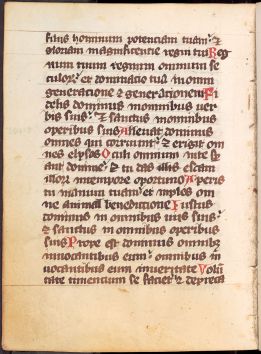 filiis hominum potenciam tuam: et
gloriam magnificencie regni tui Reg
num tuum regnum omnium se
culorum: et dominacio tua in omni
generacione et generacionem Fi
delis dominus in omnibus ver
bis suis: et sanctus in omnibus
operibus suis Alleuat dominus
omnes qui corruunt: et erigit om
nes elysos Oculi omnium in te spe
rant domine: et tu das illis escam
illorum in tempore oportuno Aperis
tu manum tuam: et imples om
ne animal benedictione Iustus
dominus in omnibus uiis suis:
et sanctus in omnibus operibus
suis Prope est dominus omnibus
inuocantibus eum: omnibus in
uocantibus eum in ueritate Volun
tate timencium se faciet: et depreca